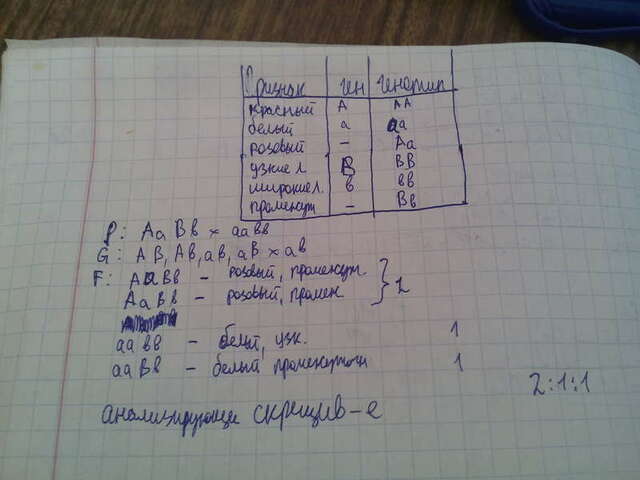 Признак ген генотип
красный А АА
белый а аа
розовый - Аа
узкие л В ВВ
широкие л. в вв
промежут - Вв
Р: Аа Вв × аа вв
G: АВ, Ав, ав, аВ × ав
F: Аа Вв - розовый, промежут
Аа Вв - розовый, промеж } 2
аа вв - белый, узк. 1
аа Вв - белый промежуточн 1
2:1:1
анализирующе скрещив-е